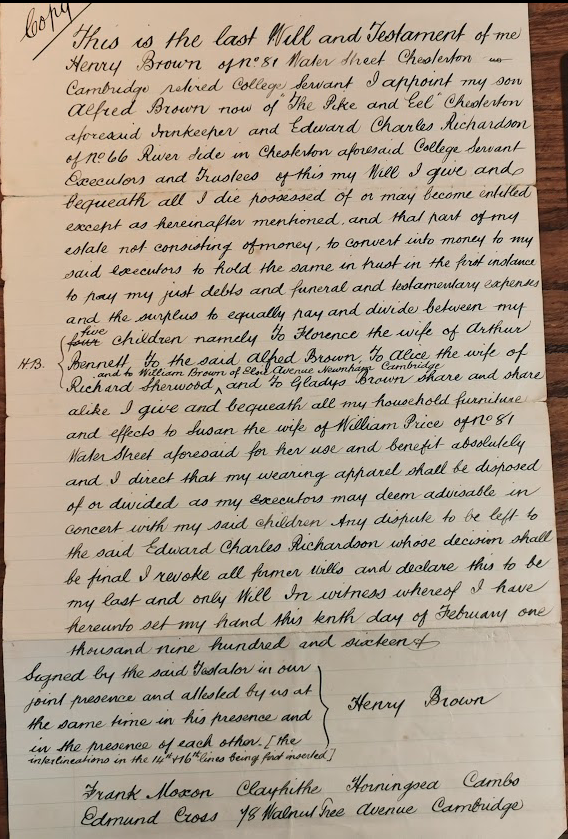 Copy
This is the last Will and Testament of me
Henry Brown of No 81 Water Street Chesterton
Cambridge retired College Servant I appoint my son
Alfred Brown now of "The Pike and Eel" Chesterton
aforesaid Innkeeper and Edward Charles Richardson
of No 66 River Side in Chesterton aforesaid College Servant
Executors and Trustees of this my Will I give and
bequeath all I die possessed of or may become entitled
except as hereinafter mentioned, and that part of my
estate not consisting of money, to convert into money to my
said executors to hold the same in trust in the first instance
to pay my just debts and funeral and testamentary expenses
and the surplus to equally pay and divide between my
five
four children namely To Florence the wife of Arthur
H.B. Bennett To the said Alfred Brown, To Alice the wife of
and to William Brown of Elm Avenue Newnham Cambridge
Richard Sherwood ^ and To Gladys Brown share and share
alike I give and bequeath all my household furniture
and effects to Susan the wife of William Price of No 81
Water Street aforesaid for her use and benefit absolutely
and I direct that my wearing apparel shall be disposed
of or divided as my executors may deem advisable in
concert with my said children Any dispute to be left to
the said Edward Charles Richardson whose decision shall
be final I revoke all former wills and declare this to be
my last and only Will In witness whereof I have
hereunto set my hand this tenth day of February one
thousand nine hundred and sixteen
Signed by the said Testator in our
joint presence and attested by us at
the same time in his presence and
in the presence of each other. [the
interlineations in the 14th + 16th lines being first inserted]
Henry Brown
Frank Moxon Clayhithe Horningsea Cambs
Edmund Cross 78 Walnut Tree Avenue Cambridge